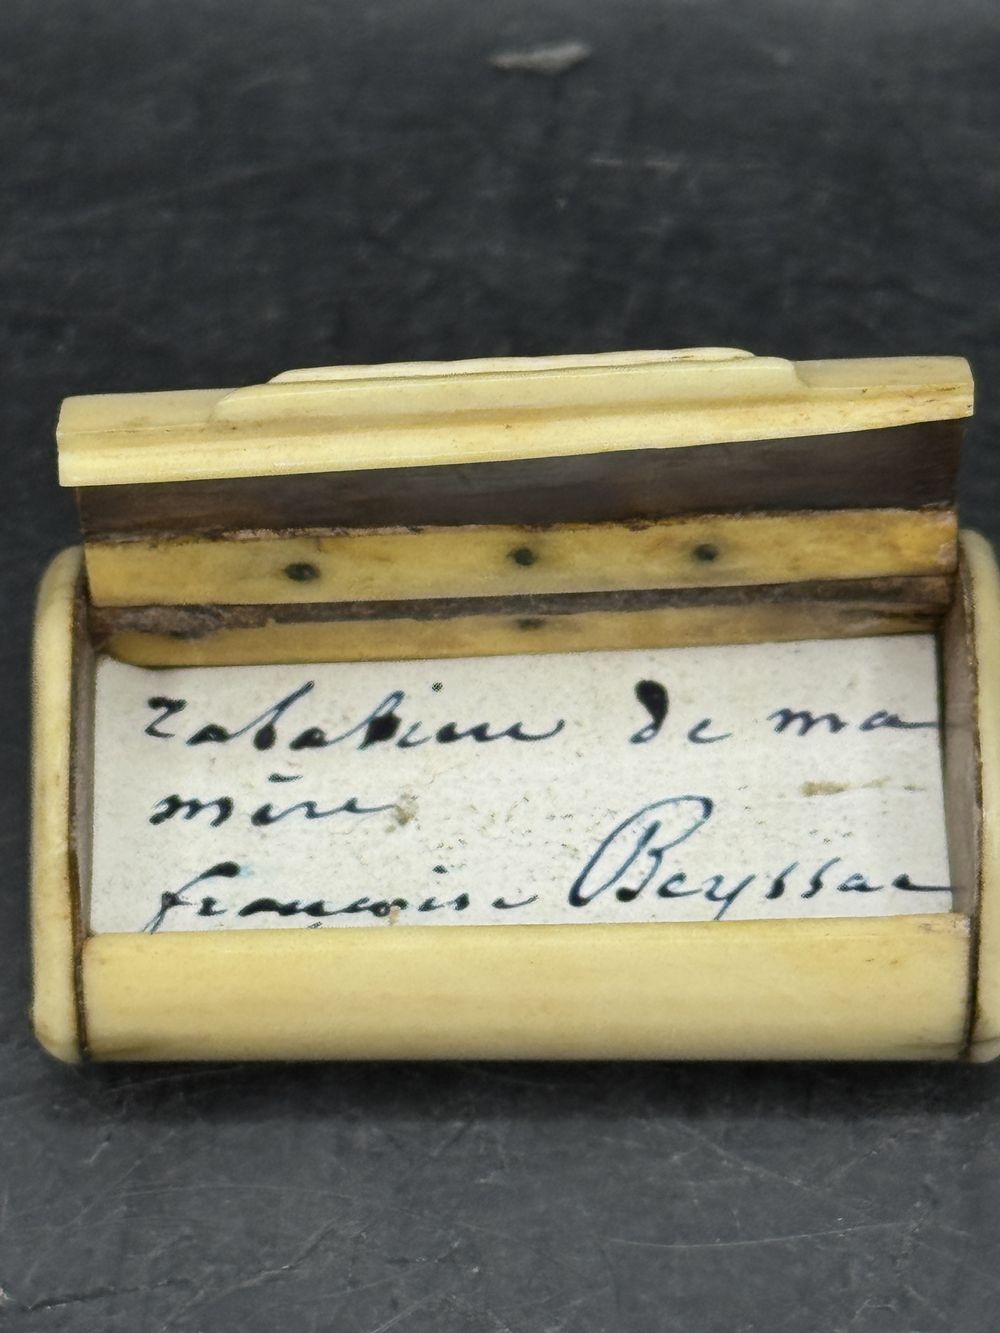 tabatiere de ma
mère
françoise Beyssac